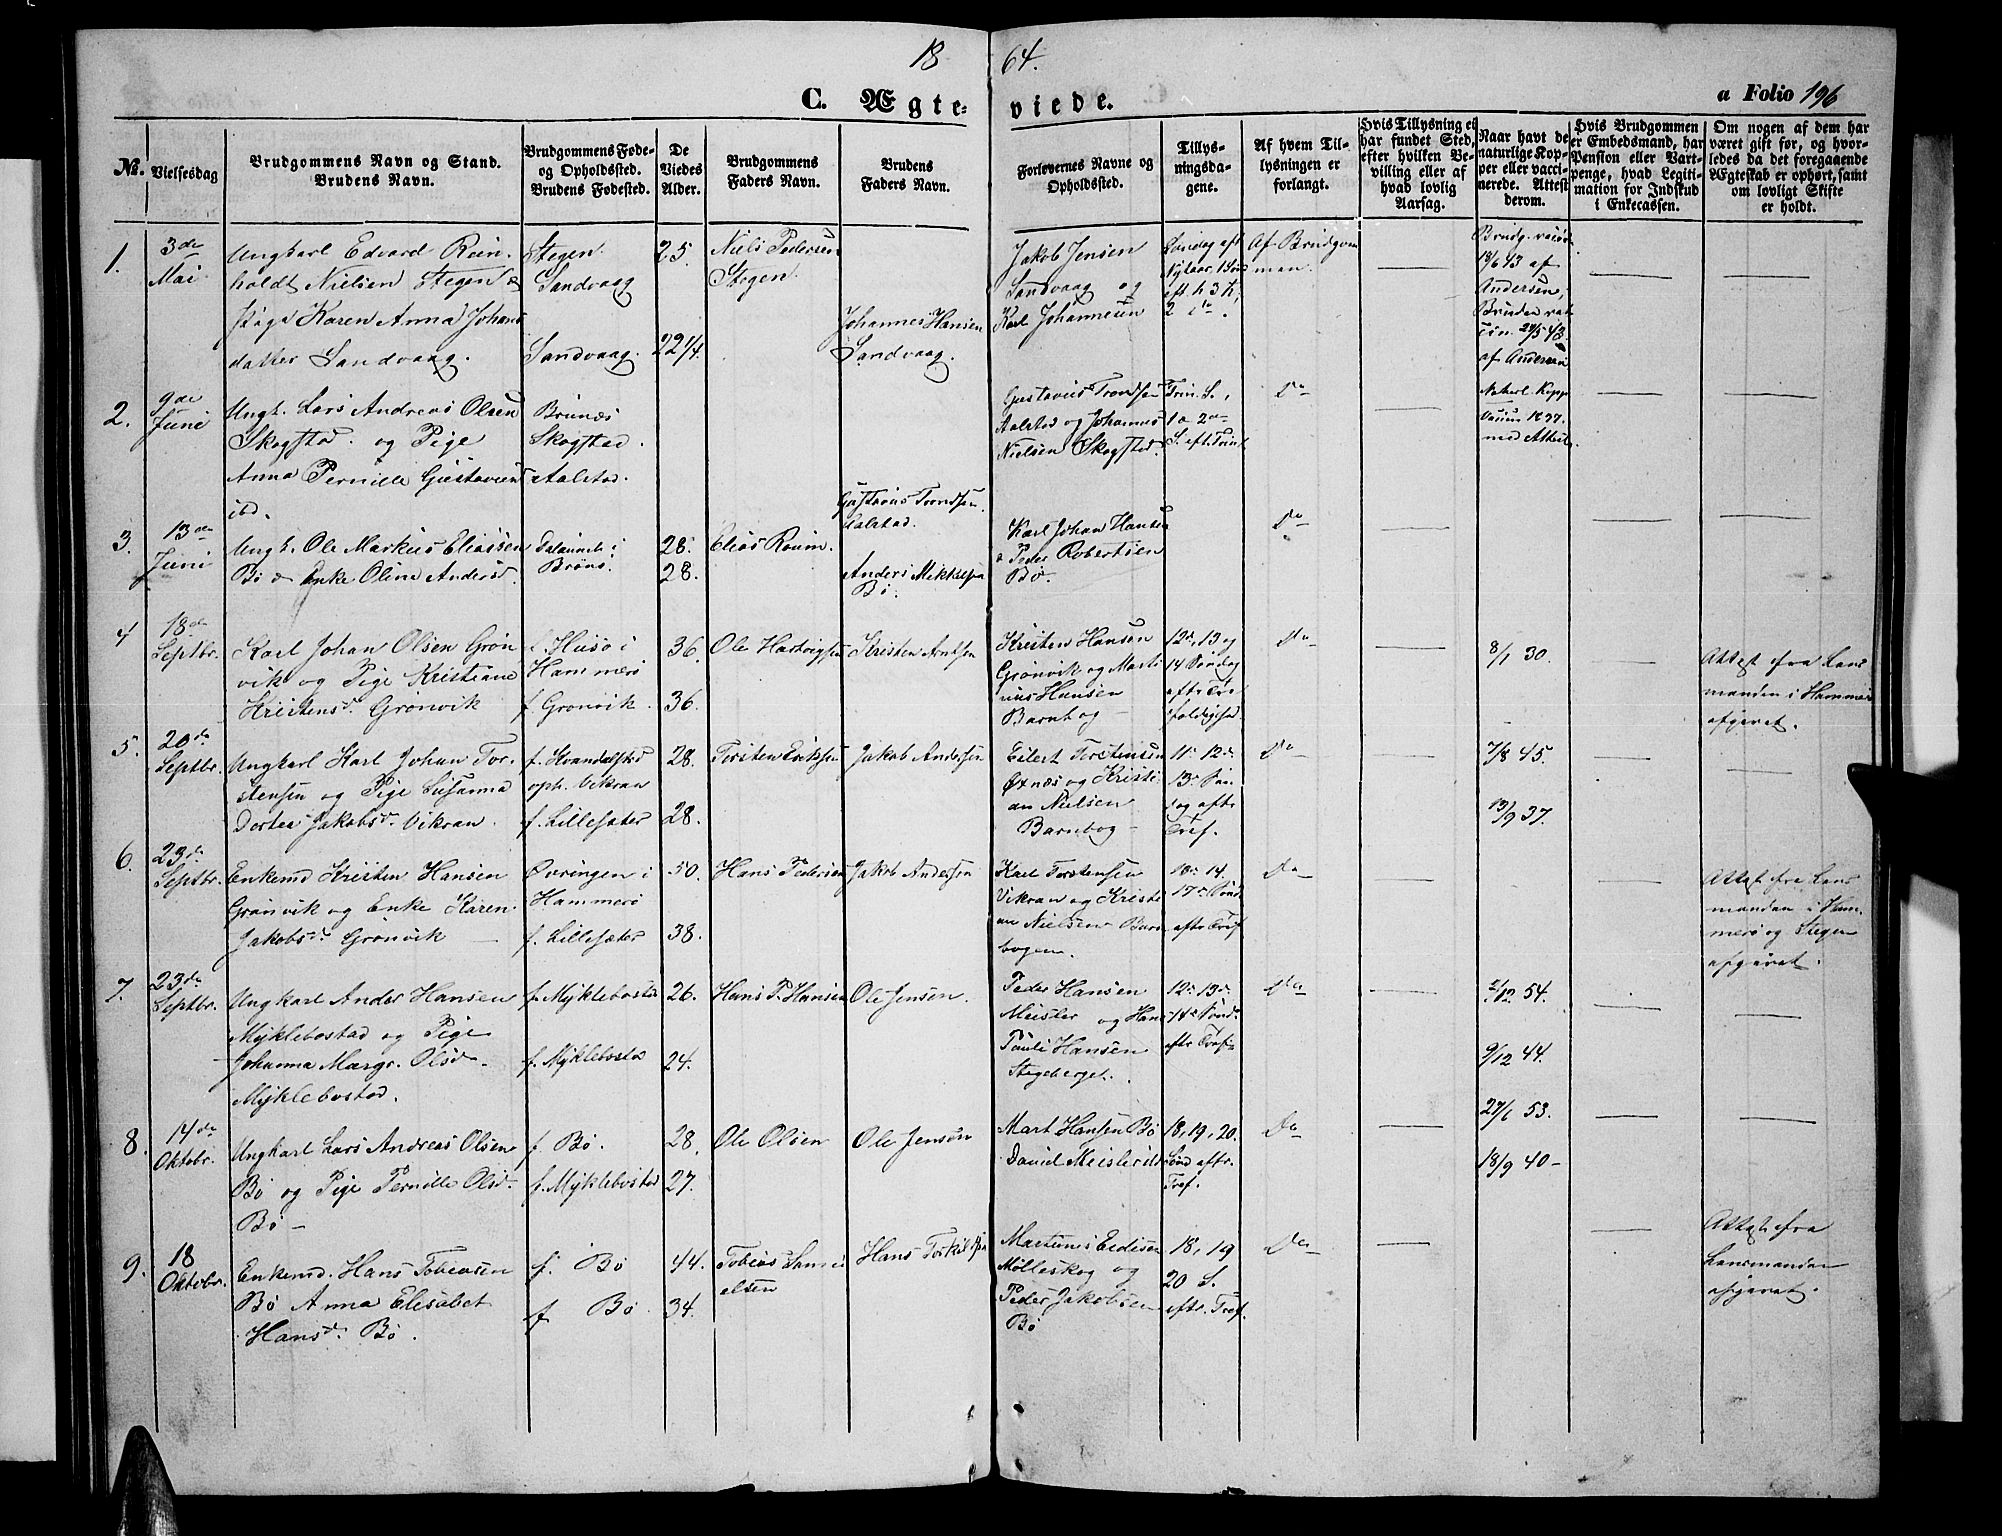 18 64.
C. Ægte- viede.
a Folio 196
No.
Vielsesdag
Brudgommens Navn og Stand.
Brudens Navn.
Brudgommens Føde-
og Opholdssted.
Brudens Fødested.
De
Viedes
Alder.
Brudgommens
Faders Navn.
Brudens
Faders Navn.
Forlovernes Navne og
Opholdssted.
Tillys-
ningsda-
gene.
Af hvem Til-
lysningen er
forlangt.
Hvis Tillysning ei
har fundet Sted,
efter hvilken Be-
villing eller af
hvad lovlig
Aarsag.
Naar havt de
naturlige Kop-
per eller vacci-
nerede. Attest
derom.
Hvis Brudgommen
er Embedsmand, har
Pension eller Vart-
penge, hvad Legiti-
mation for Indskud
i Enkecassen.
Om nogen af dem har
været gift før, og hvor-
ledes da det foregaaende
Ægteskab er ophørt, samt
om lovligt Skifte
er holdt.
1.
3de
Mai
Ungkarl Edvard Rein-
holdt Nielsen Stegen &
Pige Karen Anna Johans
datter Sandvaag.
Stegen
Sandvaag
Sandvaag.
25.
22 1/4.
Niels Pedersen
Stegen.
Johannes Hansen
Sandvaag.
Jakob Jensen
Sandvaag og
Karl Johannesen
Søndag eft
Nytaar, 1 Sønd
eft. h 3 K,
2 do.
Af Brudgom
man.
Brudg. vaccin
18/6 43 af
Andersen,
Bruden vac
cin. 29/5 43.
af Andersen
2.
9de
Juni
Ungk. Lars Andreas Olsen
Skogstad. og Pige
Anna Pernille Gustavsen
ibd.
Brunæs
Skogstad.
Aalstad.
Gustavus Trondsen.
Aalstad.
Gustavus Trondsen
Aalstad og Johannes
Nielsen Skogstad.
Trin. S.,
1 a 2den
S. eft. Trinit
Do
Naturl. Kopp
Vaccin 1837.
med Attest.
3.
13de
Juni
Ungk. Ole Markus Eliassen
Bø & Enke Oline Andersd.
i
Brønø.
28.
28.
Elias Roum.
Anders Mikkelsen
Bø.
Karl Johan Hansen
& Peder Robertsen
Bø.
Do
4
18de
Septbr.
Karl Johan Olsen Grøn
vik og Pige Kristiane
Kristensd. Grønvik
f. Husø i
Hammerø
f. Grønvik.
36.
36.
Ole Hartvigsen
Kristen Arntsen
Kristen Hansen
Grønvik og Marti
nus Hansen
Barnt og –
12te, 13 og
14 Søndag
eftr Tre
foldighed.
Do
8/1 30.
Attest fra Lens
manden i Hammerø
afgivet.
5.
20de
Septbr.
Ungkarl Karl Johan Tor-
stensen og Pige Susanna
Dortea Jakobsd. Vikran.
f. Kvandalsstad
oph. Vikran
f. Lillesæter
28.
28.
Torsten Eriksen
Jakob Andersen
Eilert Torstensen
Øxnæs og Kristi
an Nielsen
Barnbog –
11te 12te
13de Søn
dag eftr
Tref.
Do
7/8 45.
13/9 37.
6.
23de
Septbr.
Enkemd Kristen Hansen
Grønvik og Enke Karen
Jakobsd. Grønvik –
Ovringen i
Hammerø
f. Lillesæter
50.
38.
Hans Pedersen
Jakob Andersen
Karl Torstensen
Vikran og Kristi
an Nielsen Barn
bogen.
14.
17de Sønd
eftr Tref
Do
Attest fra Lens
manden i Ham
merø og Steigen
afgivet.
7.
23de
Septbr.
Ungkarl Ander Hansen
Myklebostad og Pige
Johanna Margr. Olsd.
Myklebostad.
f. Myklebostad
f. Myklebostad
26.
24.
Hans P. Hansen
Ole Jensen.
Peder Hansen
Meisler og Hans
Pauli Hansen
Stegeberget.
12te 13de.
14de Sønd.
eftr Tref
Do
2/12 54.
9/12 44.
8.
14de
Oktobr.
Ungkarl Lars Andreas Olsen
Bø og Pige Pernille Olsd.
Bø –
f Bø.
f. Myklebostad
28.
27.
Ole Olsen
Ole Jensen
Mart Hansen Bø
Daniel Meisler
18, 19, 20.
Sønd eftr.
Tref.
Do
27/6 53.
18/9 40 –
9.
18
Oktobr.
Enkemd. Hans Tobiassen
Bø Anna Elisabet
Hansd. Bø.
f. Bø
f Bø.
44.
34.
Tobias Samu
elsen
Hans Torkilsen
Martinus Edisen
Mølleskog og
Peder Jakobsen
Bø
18, 19
20 S.
eftr. Tref.
Do
Attest fra
Lensmanden
afgivet.